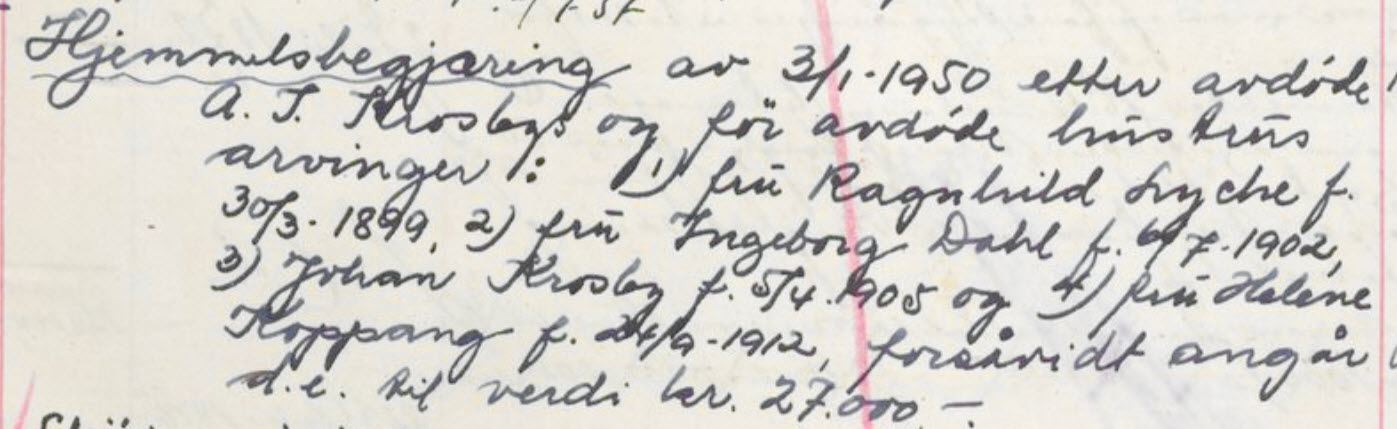 Hjemmelsbegjæring av 3/1-1950 etter avdøde
A. J. Krosbys og før avdøde hustrus
arvinger: 1) fru Ragnhild Lyche f.
30/3-1899, 2) fru Ingeborg Dahl f. 6/7-1902,
3) Johan Krosby f. 5/4.1905 og 4) fru Helene
Koppang f. 24/9-1912, forsåvidt angår
d.e. til verdi kr. 27.000,-.